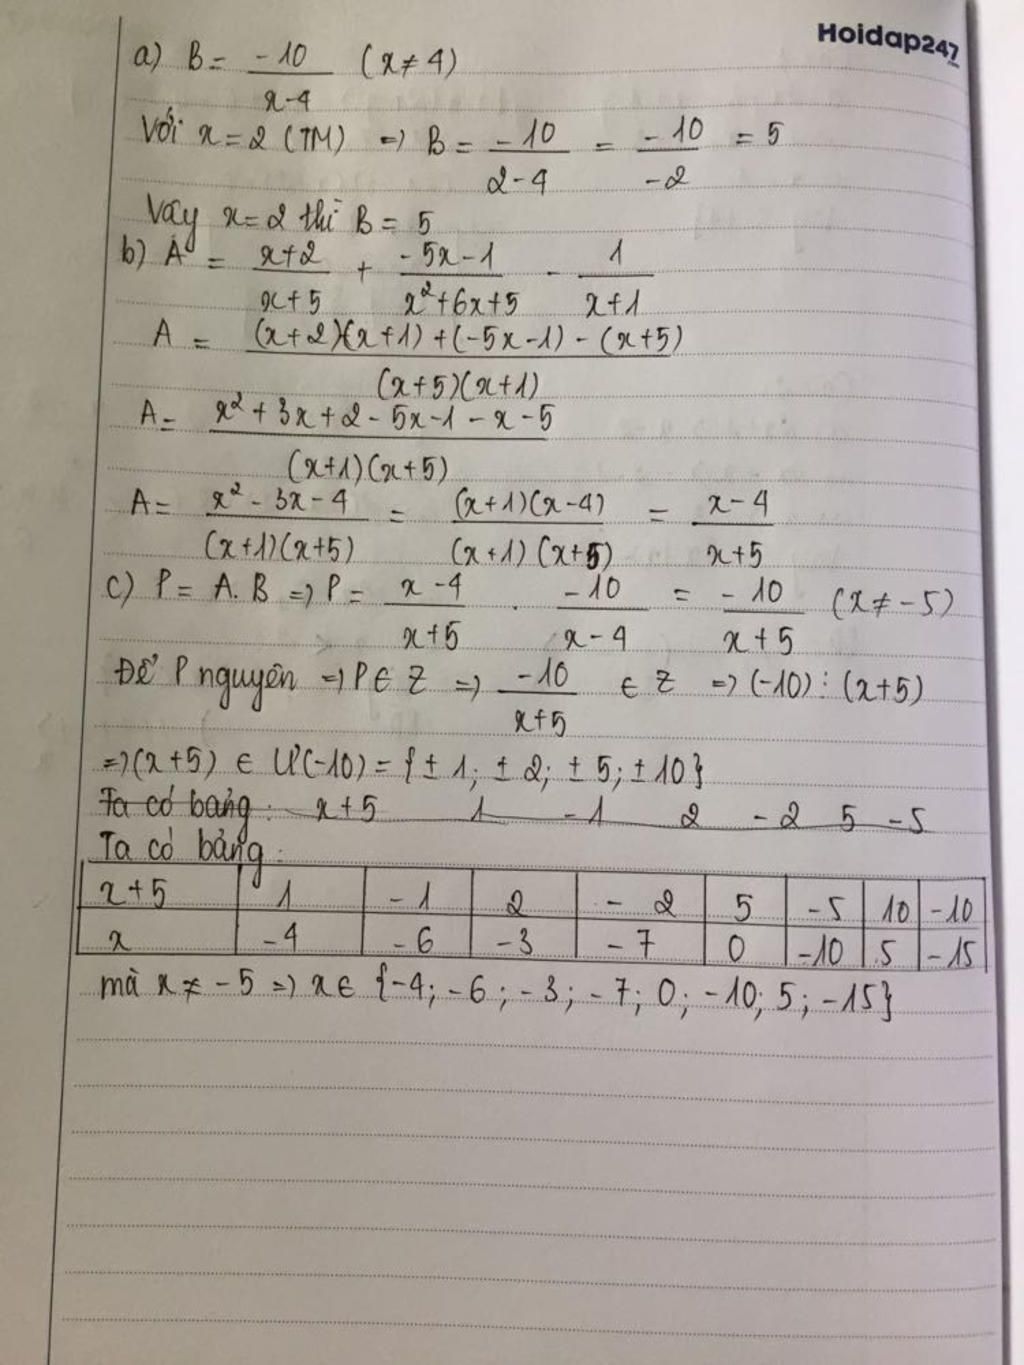 Hoidap247.com
a) B = -10/(x-4) (x≠4)
Với x=2 (TM) => B = -10/(2-4) = -10/-2 = 5
Vậy x=2 thì B = 5
b) A = (x+2)/(x+5) + (-5x-1)/(x²+6x+5) - 1/(x+1)
A = ((x+2)(x+1)+(-5x-1)-(x+5))/((x+5)(x+1))
A = (x²+3x+2-5x-1-x-5)/((x+1)(x+5))
A = (x²-3x-4)/((x+1)(x+5)) = ((x+1)(x-4))/((x+1)(x+5)) = (x-4)/(x+5)
c) P = A.B => P = (x-4)/(x+5) . -10/(x-4) = -10/(x+5) (x≠-5)
Để P nguyên => P∈Z => -10/(x+5) ∈ Z => (-10)⋮(x+5)
=>(x+5) ∈ Ư(-10) = {±1; ±2; ±5; ±10}
Ta có bảng: x+5 1 -1 2 -2 5 -5
Ta có bảng:
x+5 1 -1 2 -2 5 -5 10 -10
x -4 -6 -3 -7 0 -10 5 -15
mà x≠-5 => x∈ {-4; -6; -3; -7; 0; -10; 5; -15}